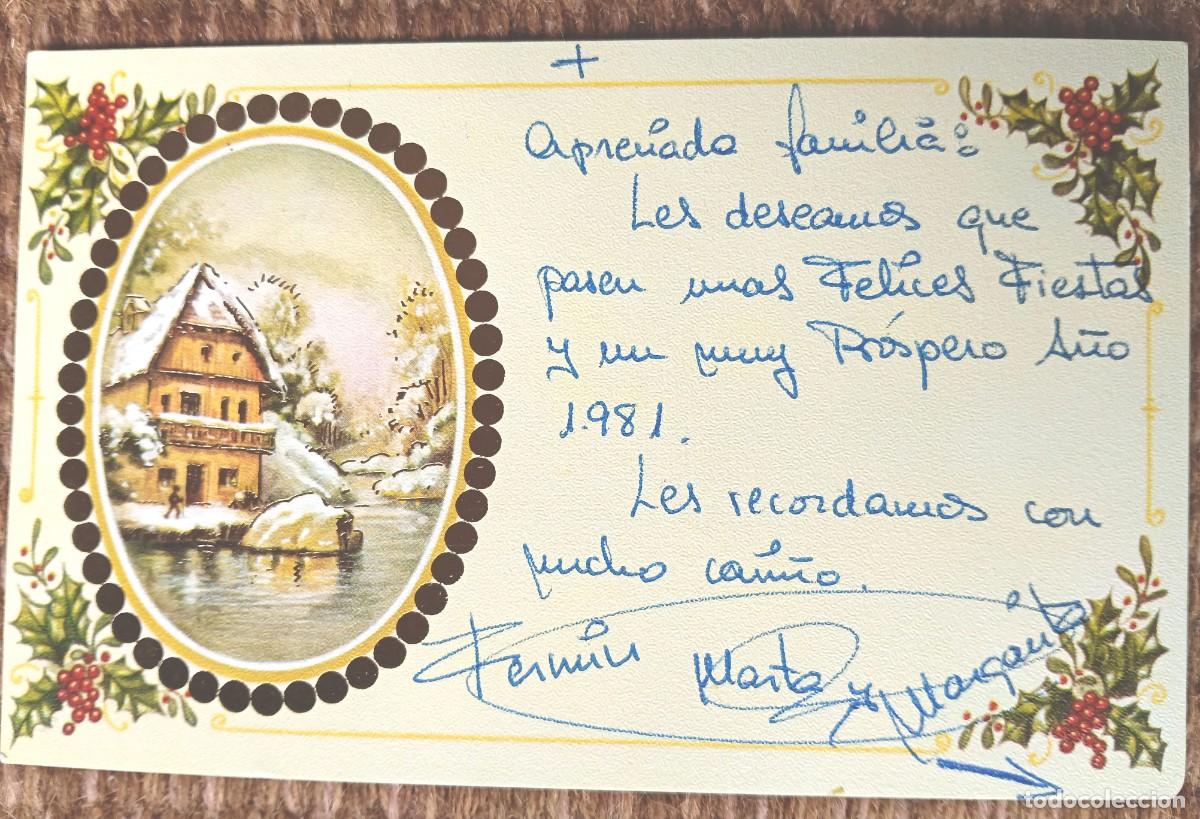 +
Apreciada familia:
Les deseamos que
pasen unas Felices Fiestas
y un muy Próspero Año
1.981.
Les recordamos con
mucho cariño.
Fermín Marta y Margarita
todocoleccion